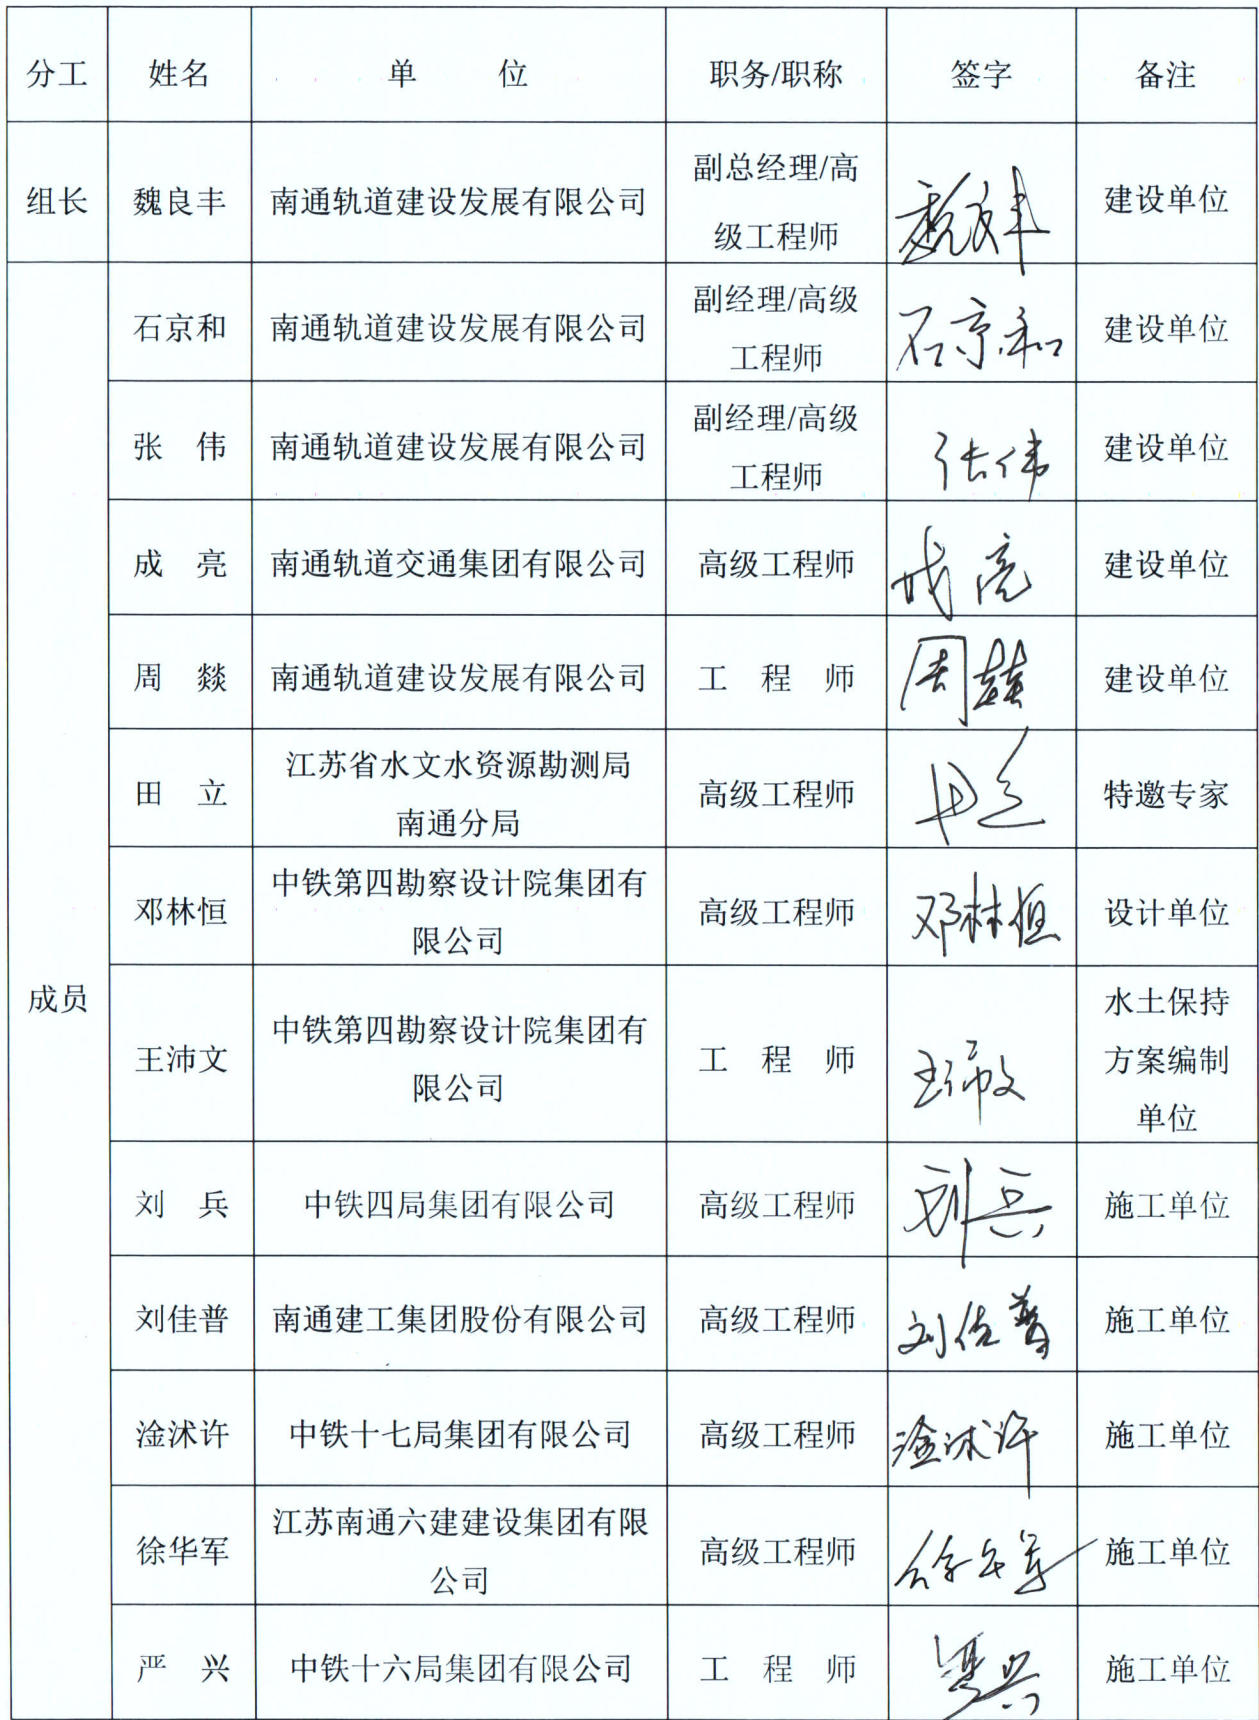 分工 姓名 单 位 职务/职称 签字 备注
组长 魏良丰 南通轨道建设发展有限公司 副总经理/高级工程师 魏良丰 建设单位
成员
石京和 南通轨道建设发展有限公司 副经理/高级工程师 石京和 建设单位
张 伟 南通轨道建设发展有限公司 副经理/高级工程师 张伟 建设单位
成 亮 南通轨道交通集团有限公司 高级工程师 成亮 建设单位
周 燚 南通轨道建设发展有限公司 工 程 师 周燚 建设单位
田 立 江苏省水文水资源勘测局南通分局 高级工程师 田立 特邀专家
邓林恒 中铁第四勘察设计院集团有限公司 高级工程师 邓林恒 设计单位
王沛文 中铁第四勘察设计院集团有限公司 工 程 师 王沛文 水土保持方案编制单位
刘 兵 中铁四局集团有限公司 高级工程师 刘兵 施工单位
刘佳普 南通建工集团股份有限公司 高级工程师 刘佳普 施工单位
淦沭许 中铁十七局集团有限公司 高级工程师 淦沭许 施工单位
徐华军 江苏南通六建建设集团有限公司 高级工程师 徐华军 施工单位
严 兴 中铁十六局集团有限公司 工 程 师 严兴 施工单位